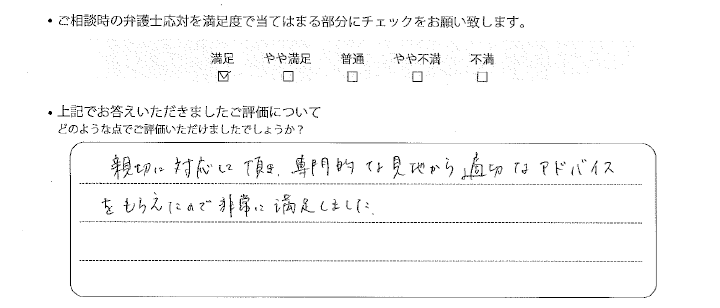 ・ご相談時の弁護士応対を満足度で当てはまる部分にチェックをお願い致します。
満足 やや満足 普通 やや不満 不満
☑ ☐ ☐ ☐ ☐
・上記でお答えいただきましたご評価について
どのような点でご評価いただけましたでしょうか？
親切に対応して頂き、専門的な見地から適切なアドバイス
をもらえたので非常に満足しました。